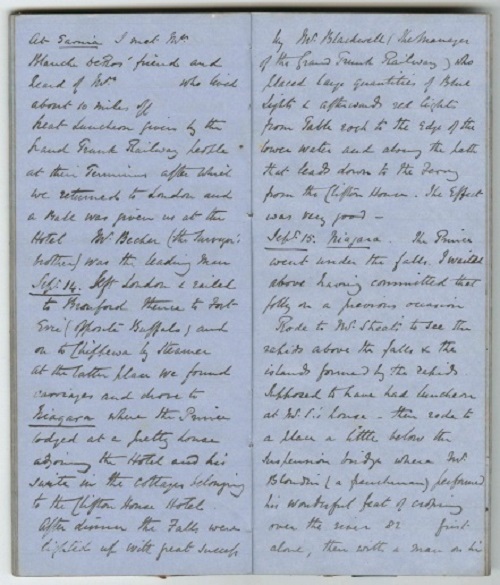 At Sarnia I met Mrs
Blanch friends and
heard of Mrs who lived
about 10 miles off
Great Luncheon given by the
Grand Trunk Railway people
at their Terminus after which
we returned to London and
a Ball was given us at the
Hotel Mr Becher (the Surveyor's
brother) was the leading man
Sept. 14. Left London & railed
to Brantford thence to Fort
Erie (opposite Buffalo) and
on to Chippewa by steamer
at the latter place we found
carriages and drove to
Niagara where the Prince
lodged at a pretty house
adjoining the Hotel and his
suite in the cottages belonging
to the Clifton House Hotel.
After dinner the Falls were
lighted up with great success
by Mr. Blackwell (the Manager
of the Grand Trunk Railway) who
placed large quantities of Blue
lights & afterwards red lights
from Table rock to the Edge of the
lower water and along the path
that leads down to the Ferry
from the Clifton House. The Effect
was very good –
Sept. 15. Niagara. The Prince
went under the falls. I waited
above having committed that
folly on a previous occasion
Rode to Mr. Street's to see the
rapids above the falls & the
islands formed by the rapids.
Supposed to have had luncheon
at Mr. S's house – then rode to
a place a little below the
suspension bridge where Mr.
Blondin (a frenchman) performed
his wonderful feat of crossing
over the river &c first
alone, then with a man on his